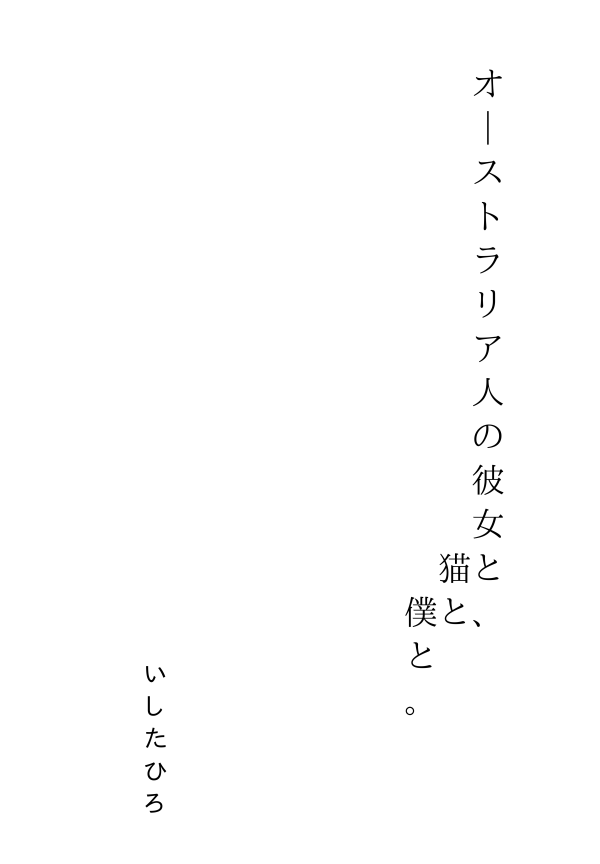 オーストラリア人の彼女と、
猫と
僕と。
いしたひろ